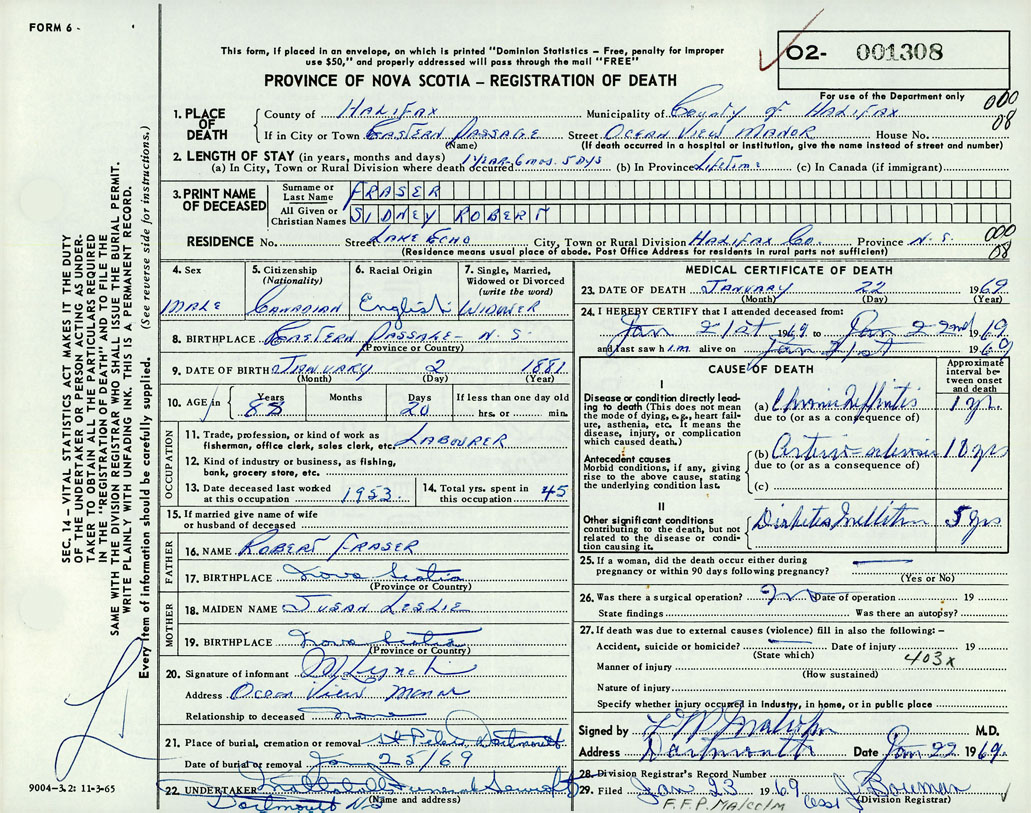 FORM 6 -
This form, if placed in an envelope, on which is printed "Dominion Statistics – Free, penalty for improper
use $50," and properly addressed will pass through the mail "FREE"
PROVINCE OF NOVA SCOTIA – REGISTRATION OF DEATH
O2- 001308
For use of the Department only
000
08
1. PLACE OF DEATH
County of Halifax Municipality of County of Halifax
If in City or Town Eastern Passage Street Ocean View Manor House No.
(Name) (If death occurred in a hospital or institution, give the name instead of street and number)
2. LENGTH OF STAY (in years, months and days)
(a) In City, Town or Rural Division where death occurred 1 year 6 mos. 5 days (b) In Province Lifetime (c) In Canada (if immigrant)
3. PRINT NAME OF DECEASED
Surname or Last Name FRASER
All Given or Christian Names SIDNEY ROBERT
RESIDENCE No. Street Lake Echo City, Town or Rural Division Halifax Co. Province N.S.
(Residence means usual place of abode. Post Office Address for residents in rural parts not sufficient)
000
08
4. Sex
Male
5. Citizenship (Nationality)
Canadian
6. Racial Origin
English
7. Single, Married, Widowed or Divorced (write the word)
Widower
8. BIRTHPLACE Eastern Passage - N.S.
(Province or Country)
9. DATE OF BIRTH January 2 1881
(Month) (Day) (Year)
10. AGE in Years Months Days If less than one day old
88 20 hrs. or min.
OCCUPATION
11. Trade, profession, or kind of work as
fisherman, office clerk, sales clerk, etc. Labourer
12. Kind of industry or business, as fishing,
bank, grocery store, etc.
13. Date deceased last worked
at this occupation 1953.
14. Total yrs. spent in
this occupation 45
15. If married give name of wife
or husband of deceased
FATHER
16. NAME Robert Fraser
17. BIRTHPLACE Nova Scotia
(Province or Country)
MOTHER
18. MAIDEN NAME Susan Leslie
19. BIRTHPLACE Nova Scotia
(Province or Country)
20. Signature of informant M Lynch
Address Ocean View Manor
Relationship to deceased none
21. Place of burial, cremation or removal St Peters Dartmouth
Date of burial or removal Jan 25/69
22. UNDERTAKER Funeral Service
(Name and address)
Dartmouth NS
MEDICAL CERTIFICATE OF DEATH
23. DATE OF DEATH January 22 1969
(Month) (Day) (Year)
24. I HEREBY CERTIFY that I attended deceased from:
Jan 21st 1969 to Jan 22nd 1969
and last saw him. alive on Jan 21st 1969
CAUSE OF DEATH
Approximate interval between onset and death
I
Disease or condition directly leading to death (This does not mean the mode of dying, e.g., heart failure, asthenia, etc. It means the disease, injury, or complication which caused death.)
(a) Chronic Nephritis 1 yr.
due to (or as a consequence of)
Antecedent causes
Morbid conditions, if any, giving rise to the above cause, stating the underlying condition last.
(b) Arterio-sclerosis 10 yrs
due to (or as a consequence of)
(c)
II
Other significant conditions
contributing to the death, but not related to the disease or condition causing it.
Diabetes Mellitus 5 yrs
25. If a woman, did the death occur either during
pregnancy or within 90 days following pregnancy?
(Yes or No)
26. Was there a surgical operation? No Date of operation 19
State findings Was there an autopsy?
27. If death was due to external causes (violence) fill in also the following: –
Accident, suicide or homicide? Date of injury 19
(State which)
Manner of injury 403x
(How sustained)
Nature of injury
Specify whether injury occured in industry, in home, or in public place
Signed by F P Malcolm M.D.
Address Dartmouth Date Jan 22 1969.
28. Division Registrar's Record Number
29. Filed Jan 23 1969 J Bowman
(Division Registrar)
F.F.P. Malcolm
9004–3.2: 11-3-65
SEC. 14 – VITAL STATISTICS ACT MAKES IT THE DUTY
OF THE UNDERTAKER OR PERSON ACTING AS UNDER-
TAKER TO OBTAIN ALL THE PARTICULARS REQUIRED
IN THE "REGISTRATION OF DEATH" AND TO FILE THE
SAME WITH THE DIVISION REGISTRAR WHO SHALL ISSUE THE BURIAL PERMIT.
WRITE PLAINLY WITH UNFADING INK. THIS IS A PERMANENT RECORD.
Every item of Information should be carefully supplied. (See reverse side for instructions.)